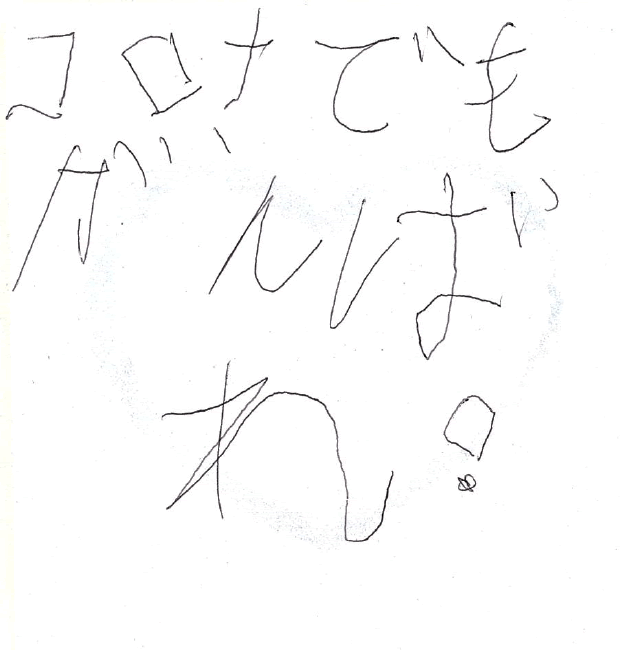 コロナでも
がんば
れ!